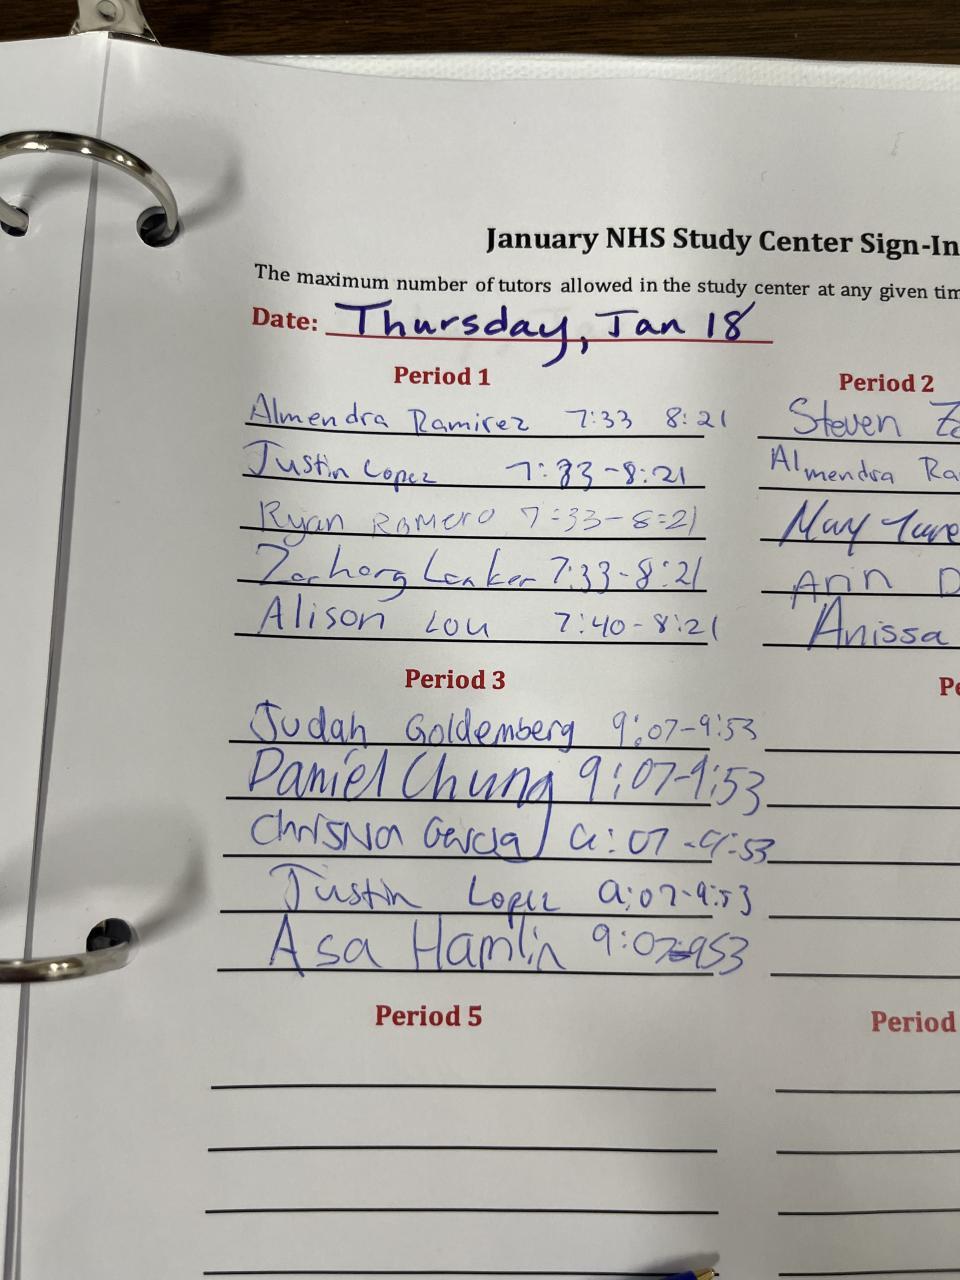 January NHS Study Center Sign-In
The maximum number of tutors allowed in the study center at any given tim
Date: Thursday, Jan 18
Period 1
Almendra Ramirez 7:33 8:21
Justin Lopez 7:33-8:21
Ryan Romero 7:33-8:21
7:33-8:21
Alison Lou 7:40-8:21
Period 2
Steven
Almendra Ra
May
Arin D
Anissa
Period 3
Judah Goldemberg 9:07-9:53
Daniel Chung 9:07-9:53
Garcia 9:07-9:53
Justin Lopez 9:07-9:53
Asa Hamlin 9:07-953
Pe
Period 5
Period